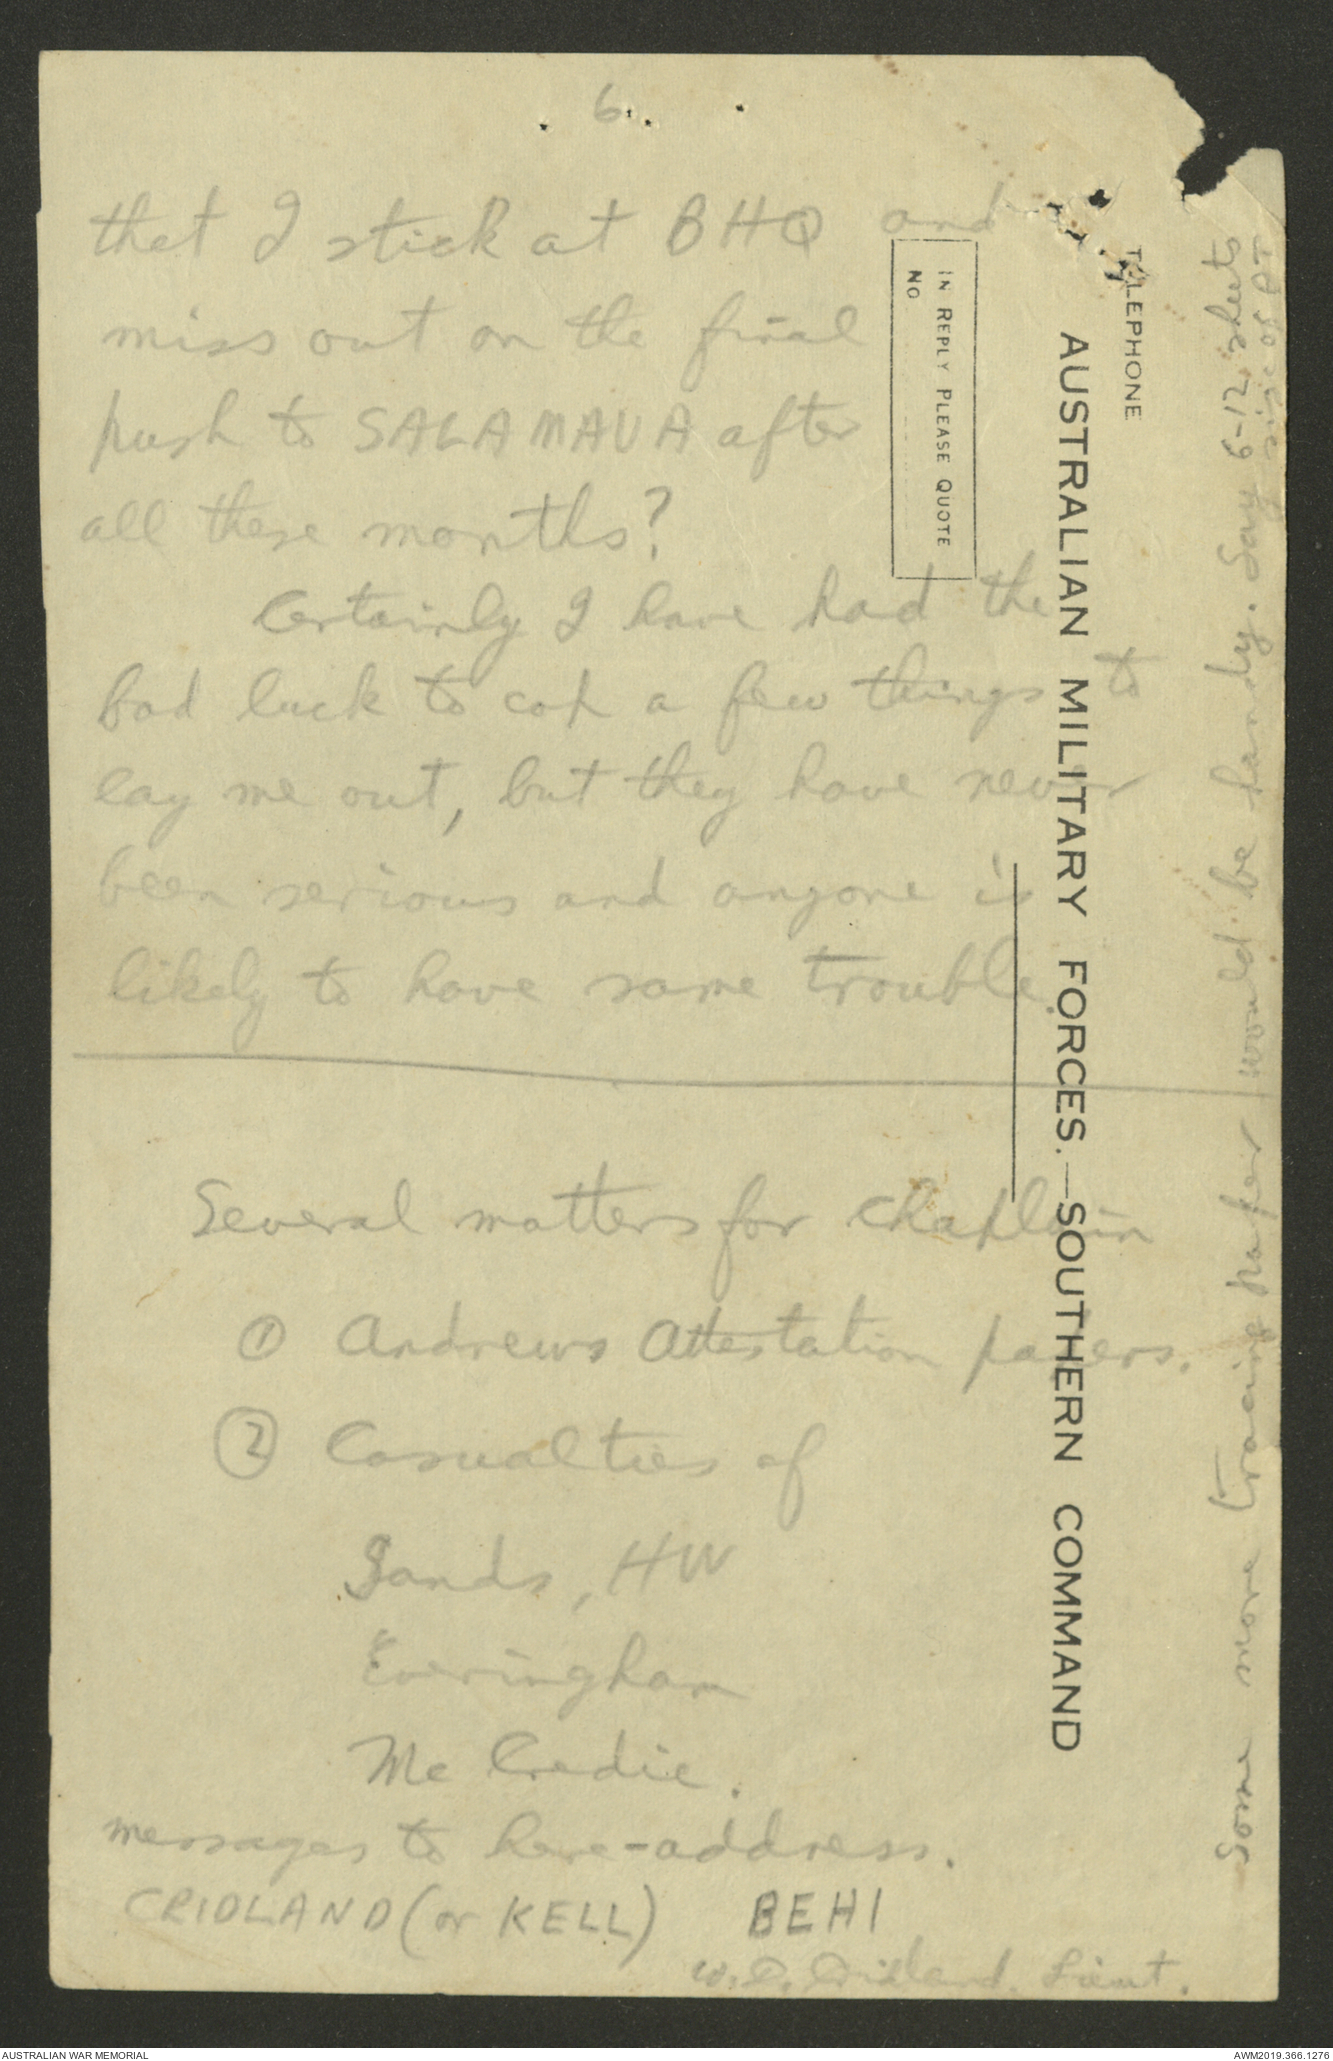 6.
that I stick at BHQ and
miss out on the final
push to SALAMAUA after
all these months?
Certainly I have had the
bad luck to cop a few things to
lay me out, but they have never
been serious and anyone is
likely to have same trouble.
Several matters for Chaplain
① Andrews Attestation papers.
② Casualties of
Sands, HW
Everingham
McCredie.
messages to here-address.
CRIDLAND (or KELL) BEHI
W.D. Cridland. Lieut.
TELEPHONE
AUSTRALIAN MILITARY FORCES.—SOUTHERN COMMAND
IN REPLY PLEASE QUOTE
NO
AUSTRALIAN WAR MEMORIAL
AWM2019.366.1276